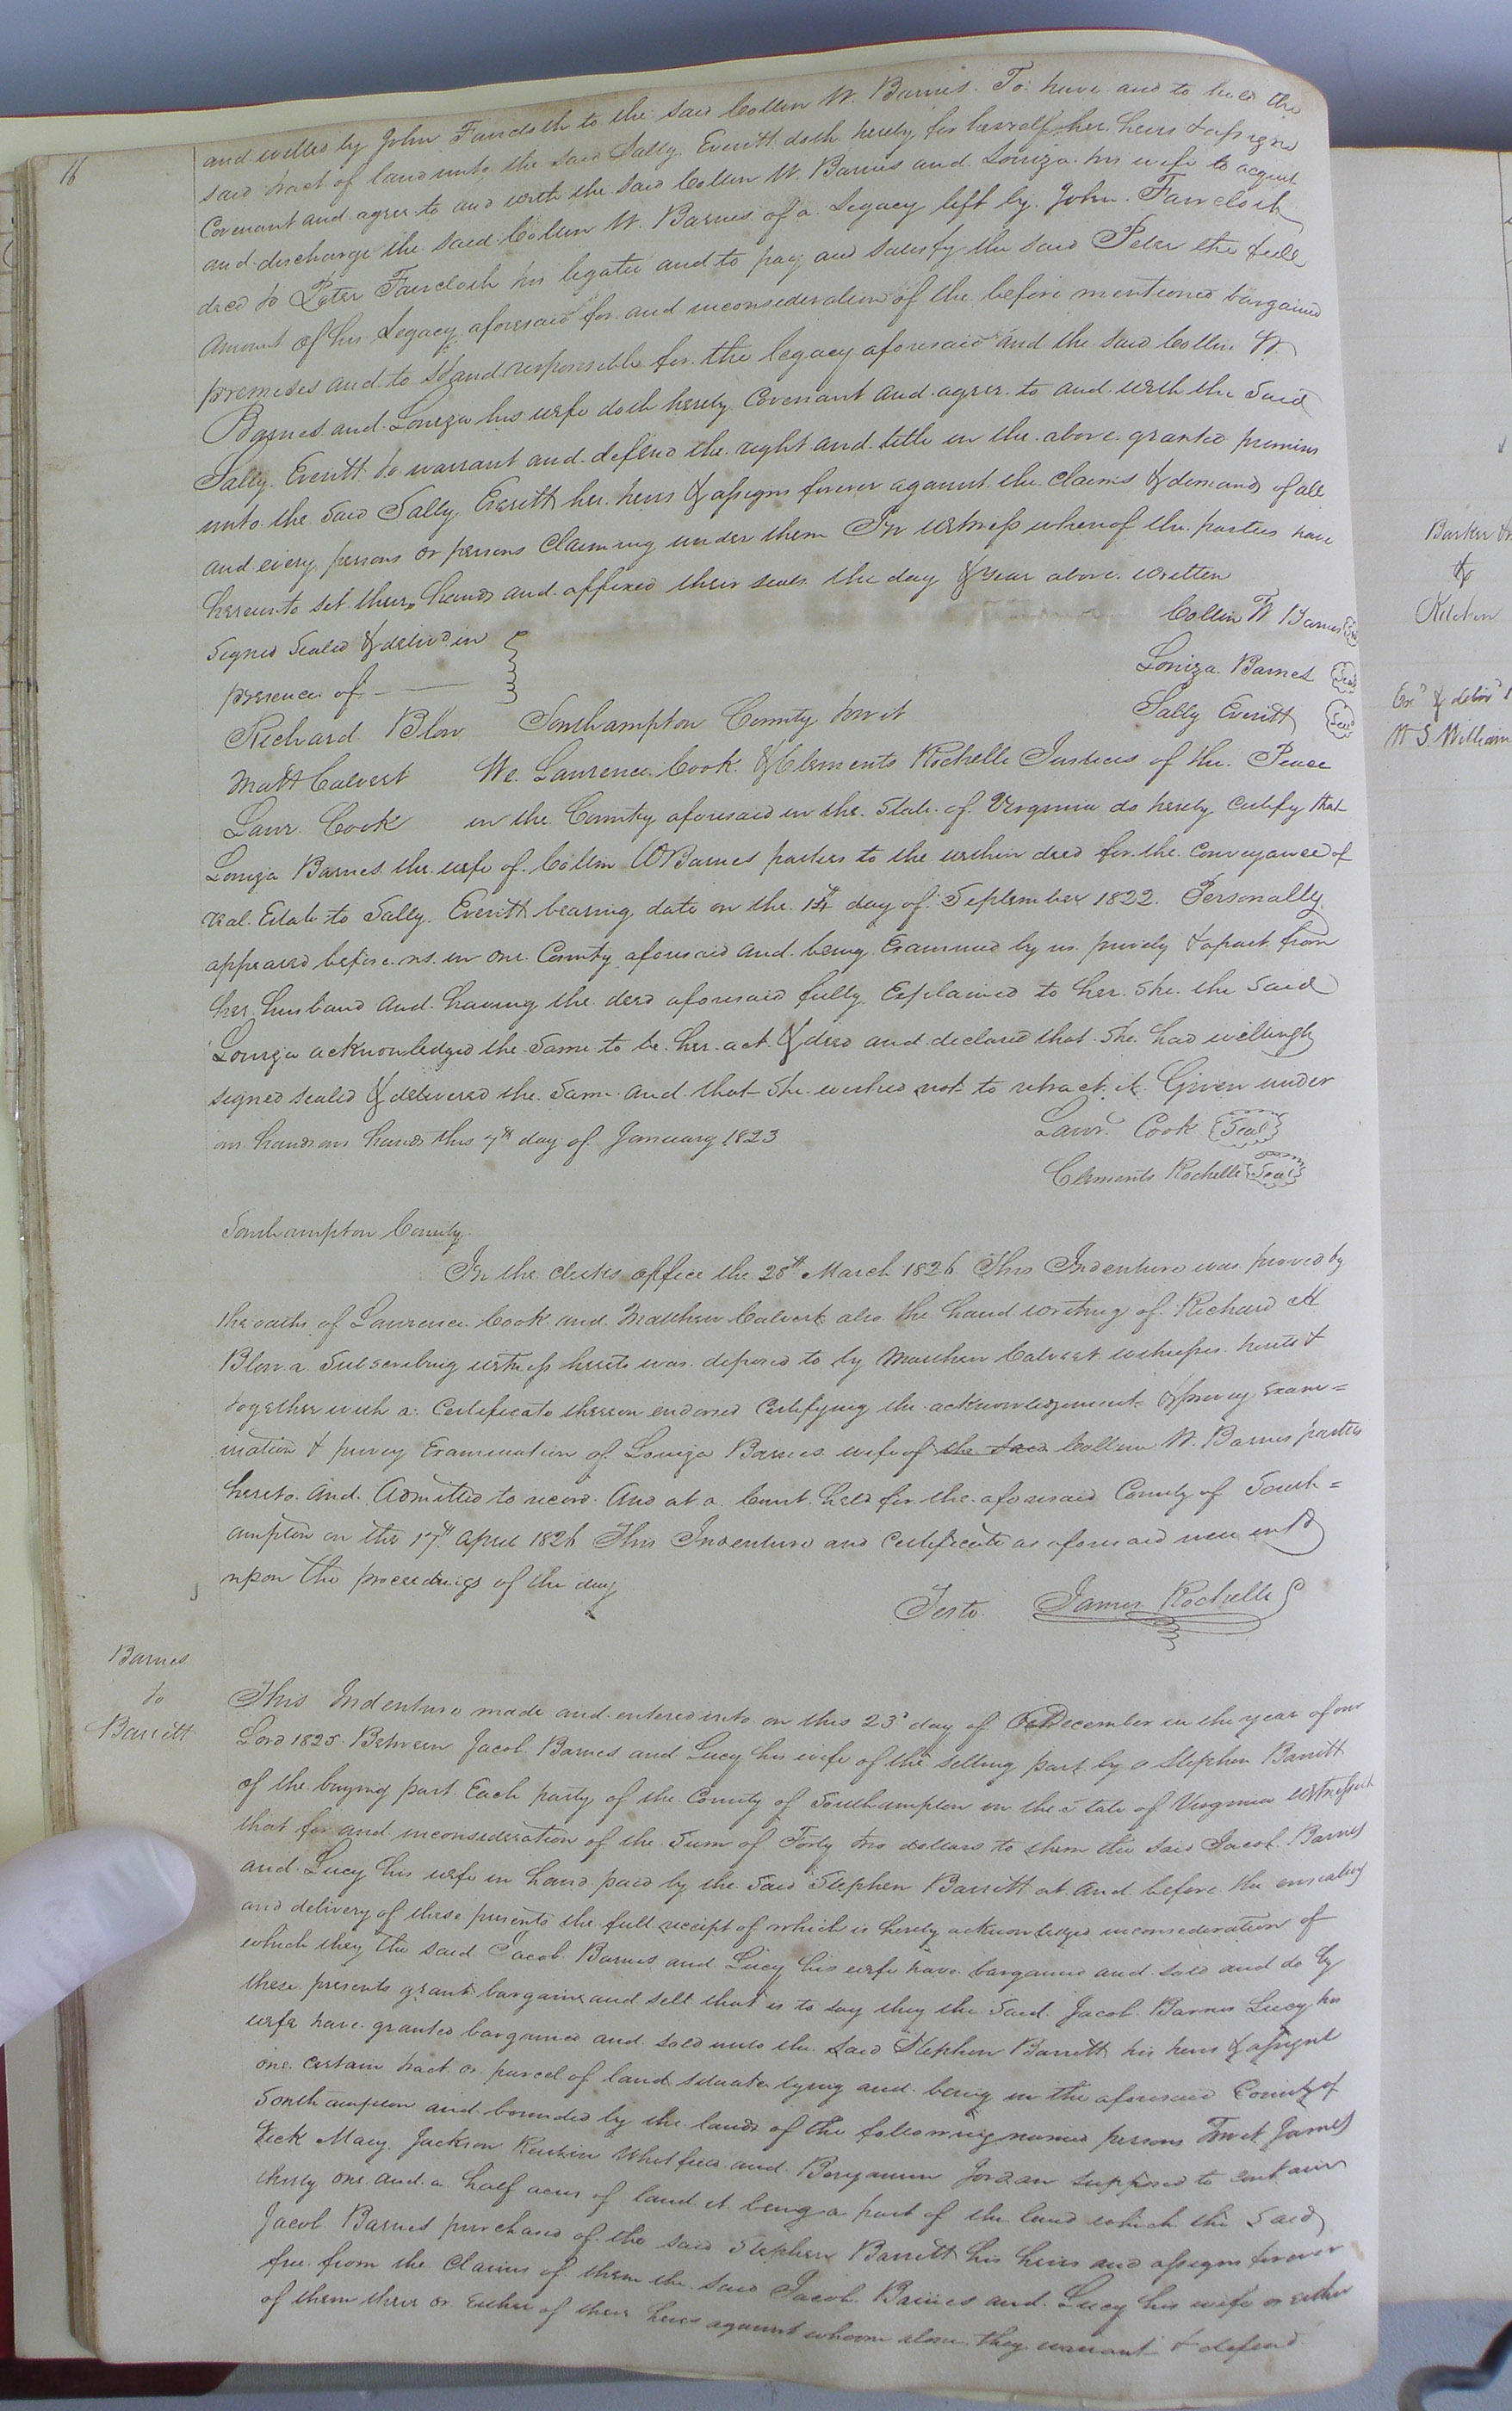 16
and willed by John Faircloth to the said Collin W. Barnes. To have and to hold the
said tract of land unto the said Sally Everitt doth hereby for herself her heirs & assigns
Covenant and agree to and with the said Collin W. Barnes and Louiza his wife to acquit
and discharge the said Collin W. Barnes of a Legacy left by John Faircloth
decd to Peter Faircloth his legatee and to pay and satisfy the said Peter the full
amount of his Legacy aforesaid for and inconsideration of the before mentioned bargained
premises and to Stand responsible for the legacy aforesaid and the said Collin W.
Barnes and Louiza his wife doth hereby Covenant and agree to and with the said
Sally Everitt to warrant and defend the right and title in the above granted premises
unto the said Sally Everitt her heirs & assigns forever against the claims & demands of all
and every persons or persons claiming under them In witness whereof the parties have
hereunto set their hands and affixed their seals the day & year above written
Signed Sealed & delivd in
presence of
Collin W Barnes Seal
Louiza Barnes Seal
Sally Everitt Seal
Richard Blow
Matt Calvert
Lawr. Cook
Southampton County towit
We Lawrence Cook & Clements Rochelle Justices of the Peace
in the County aforesaid in the State of Virginia do hereby certify that
Louiza Barnes the wife of Collin W Barnes parties to the within deed for the conveyance of
real Estate to Sally Everitt bearing date on the 14th day of September 1822. Personally
appeared before us in our County aforesaid and being Examined by us privily & apart from
her husband and having the deed aforesaid fully Explained to her she the said
Louiza acknowledged the same to be her act & deed and declared that she had willingly
signed sealed & delivered the same and that she wished not to retract it Given under
our hands our hands this 7th day of January 1823
Lawr. Cook Seal
Clements Rochelle Seal
Southampton County
In the clerks office the 28th March 1826 This Indenture was proved by
the oaths of Lawrence Cook and Matthew Calvert also the hand writing of Richard
Blow a Subscribing witness hereto was deposed to by Matthew Calvert witnesses hereto &
together with a Certificate thereon endorsed Certifying the acknowledgement & privy exam=
ination & privy Examination of Louiza Barnes wife of the said Collin W. Barnes parties
hereto and Admitted to record. And at a Court held for the aforesaid County of South=
ampton on the 17th April 1826 This Indenture and Certificate as aforesaid were entd
upon the proceedings of the day
Teste James Rochelle
Barnes
to
Barrett
This Indenture made and entered into on this 23d day of December in the year of our
Lord 1825 Between Jacob Barnes and Lucy his wife of the selling part by & Stephen Barrett
of the buying part Each party of the County of Southampton in the State of Virginia witnesseth
that for and inconsideration of the Sum of Forty two dollars to them the said Jacob Barnes
and Lucy his wife in hand paid by the said Stephen Barrett at and before the ensealing
and delivery of these presents the full receipt of which is hereby acknowledged inconsideration of
which they the said Jacob Barnes and Lucy his wife have bargained and sold and do by
these presents grant bargain and sell that is to say they the said Jacob Barnes Lucy his
wife have granted bargained and sold unto the said Stephen Barrett his heirs & assigns
one certain tract or parcel of land situate lying and being in the aforesaid County of
Southampton and bounded by the lands of the following named persons Towit James
Vick Mary Jackson Reubin Whitfield and Benjamin Jordan supposed to contain
thirty one and a half acres of land it being a part of the land which the said
Jacob Barnes purchased of the said Stephen Barrett his heirs and assigns forever
free from the Claims of them the said Jacob Barnes and Lucy his wife or either
of them theirs or Either of their heirs against whom alone they warrant & defend
Barker
&
Kitchen
Exd & delivd
W S. William